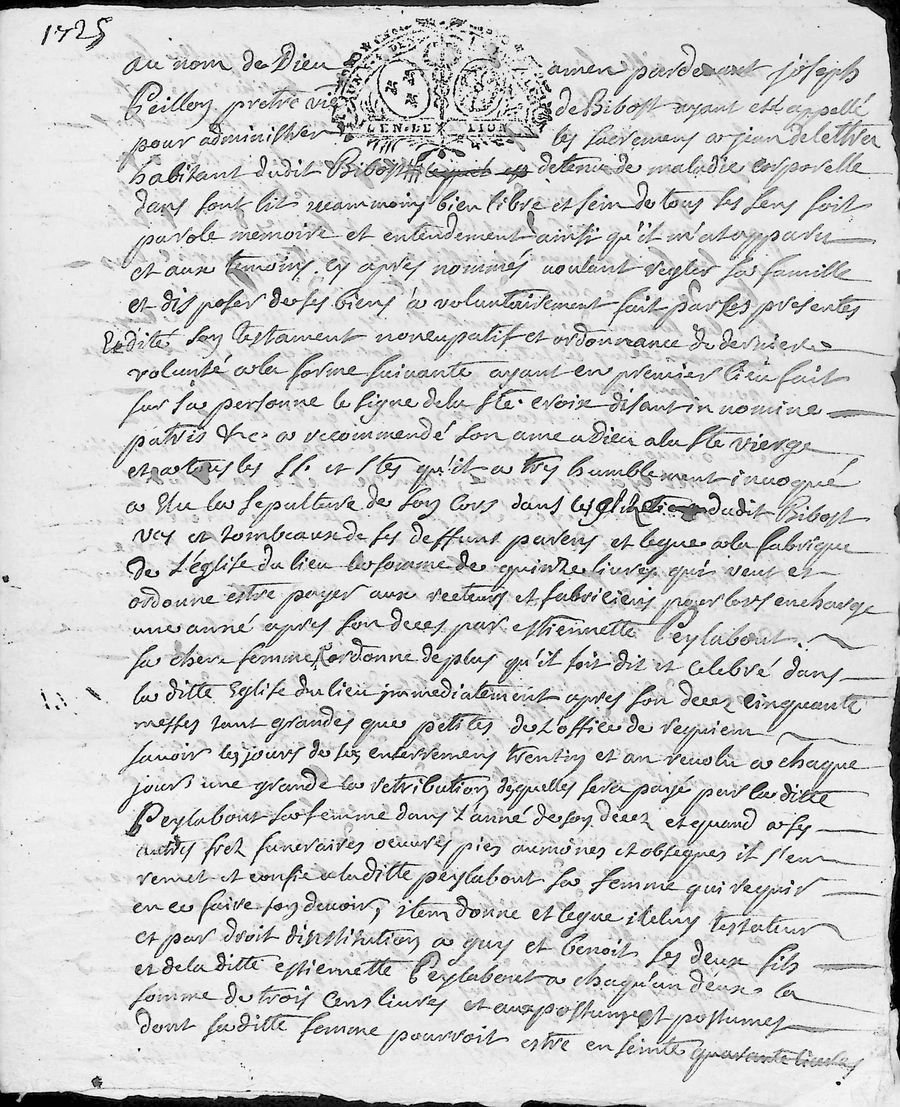 1725
au nom de Dieu amen pardevant joseph
Peillon pretre vic de Bibost ayant esté appellé
pour administrer les sacremens a jean deletra
GEN DE LION
habitant dudit Bibost detenu de maladie corporelle
dans sont lit neammoins bien libre et sein de tous ses sens soit
parole memoire et entendement ainsi qu'il m'at apparu
et aux temoins cy apres nommés voulant regler sa famille
et disposer de ses biens a voluntairement fait par ses presentes
Et dité son testament noncupatif et ordonnance de derniere
volunté a la forme suivante ayant en premier lieu fait
sur sa personne le signe de la Ste. croix disant in nomine
patris &c. a recommendé son ame a Dieu a la Ste vierge
et a tous les SS. et Stes qu'il a tres humblement invoqué
a Elu la sepulture de son cors dans le dudit Bibost
et tombeaux de ses deffuns parens et legue a la fabrique
de L'église du lieu la somme de quinze livres qui veut et
ordonne estre payer aux recteurs et fabriciens pour lors en charge
une anné apres son deces par estiennette Peylabout
sa chere femme, ordonne de plus qu'il soit dit et celebré dans
la ditte Eglise du lieu immediatement apres son decez cinquante
messes tant grandes que petites de L'office de requiem
savoir les jours de ses enterremens trentin et an revolu a chaque
jour une grande la retribution desquelles sera payé par la ditte
Peylabout sa femme dans L'anné de son decez et quand a ses
autres frez funeraires oeuvres pies aumones et obseques il s'en
remet et confie a la ditte peylabout sa femme qui requir
en ce faire son devoir, item donne et legue iceluy testateur
et par droit d'institution a guy et benoit ses deux fils
et de la ditte estiennette Peylabout a chaqu'un d'eux la
somme de trois cens livres et aux postume et postumes
dont sa ditte femme pourroit estre enseinte quarante livres